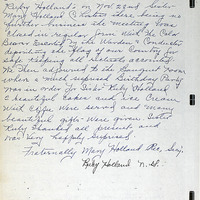 Ruby Holland's on Nov. 22nd Sister
Mary Holland
business the meeting was
closed in regular form with the Color
bearer Escorted by the Warden & Conductor
depositing the flag of our Country for
safe keeping all retired according
We then adjourned to the Banquet room
where a much surprised Birthday Party
was in order for Sister Ruby Holland
a beautiful Cakes and Ice Cream
with Coffee were served and many
beautiful gifts were given. Sister
Ruby thanked all present and
was very happily surprised.
Fraternally Mary Holland Rec. Sec'y.
Ruby Holland N. G.